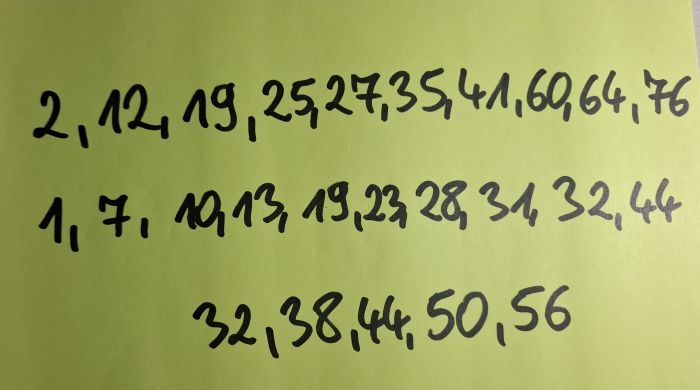 2, 12, 19, 25, 27, 35, 41, 60, 64, 76
1, 7, 10, 13, 19, 23, 28, 31, 32, 44
32, 38, 44, 50, 56